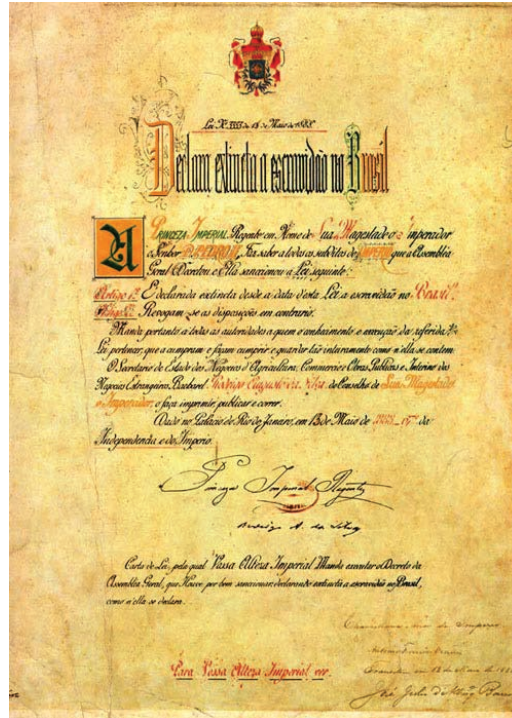 Lei Nº 3353 de 13 de Maio de 1888
Declara extincta a escravidão no Brasil
A PRINCEZA IMPERIAL Regente em Nome de Sua Magestade o Imperador
o Senhor D. PEDRO II, Faz saber a todos os subditos do IMPERIO que a Assembléa
Geral Decretou e Ella sanccionou a Lei seguinte:
Artigo 1º É declarada extincta desde a data d'esta Lei a escravidão no Brasil.
Artigo 2º Revogam-se as disposições em contrario.
Manda portanto a todas as autoridades a quem o conhecimento e execução da referida
Lei pertencer, que a cumpram e façam cumprir e guardar tão inteiramente como n'ella se contem.
O Secretario de Estado dos Negocios d'Agricultura, Commercio e Obras Publicas e Interino dos
Negocios Estrangeiros, Bacharel Rodrigo Augusto da Silva do Conselho de Sua Magestade
o Imperador, o faça imprimir, publicar e correr.
Dado no Palacio do Rio de Janeiro, em 13 de Maio de 1888 67º da
Independencia e do Imperio.
Princeza Imperial Regente
Rodrigo A. da Silva
Carta de Lei, pela qual Vossa Alteza Imperial Manda executar o Decreto da
Assembléa Geral, que Houve por bem sanccionar, declarando extincta a escravidão no Brasil,
como n'ella se declara.
Para Vossa Alteza Imperial ver.